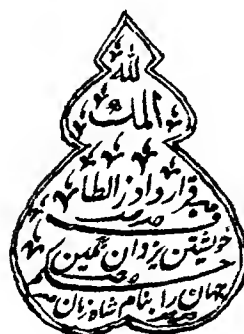 لله
الملك
قرار داد ز الطا
ف
خویشتن یزدان نگین
حکم
جهان را بنام شاه زمان